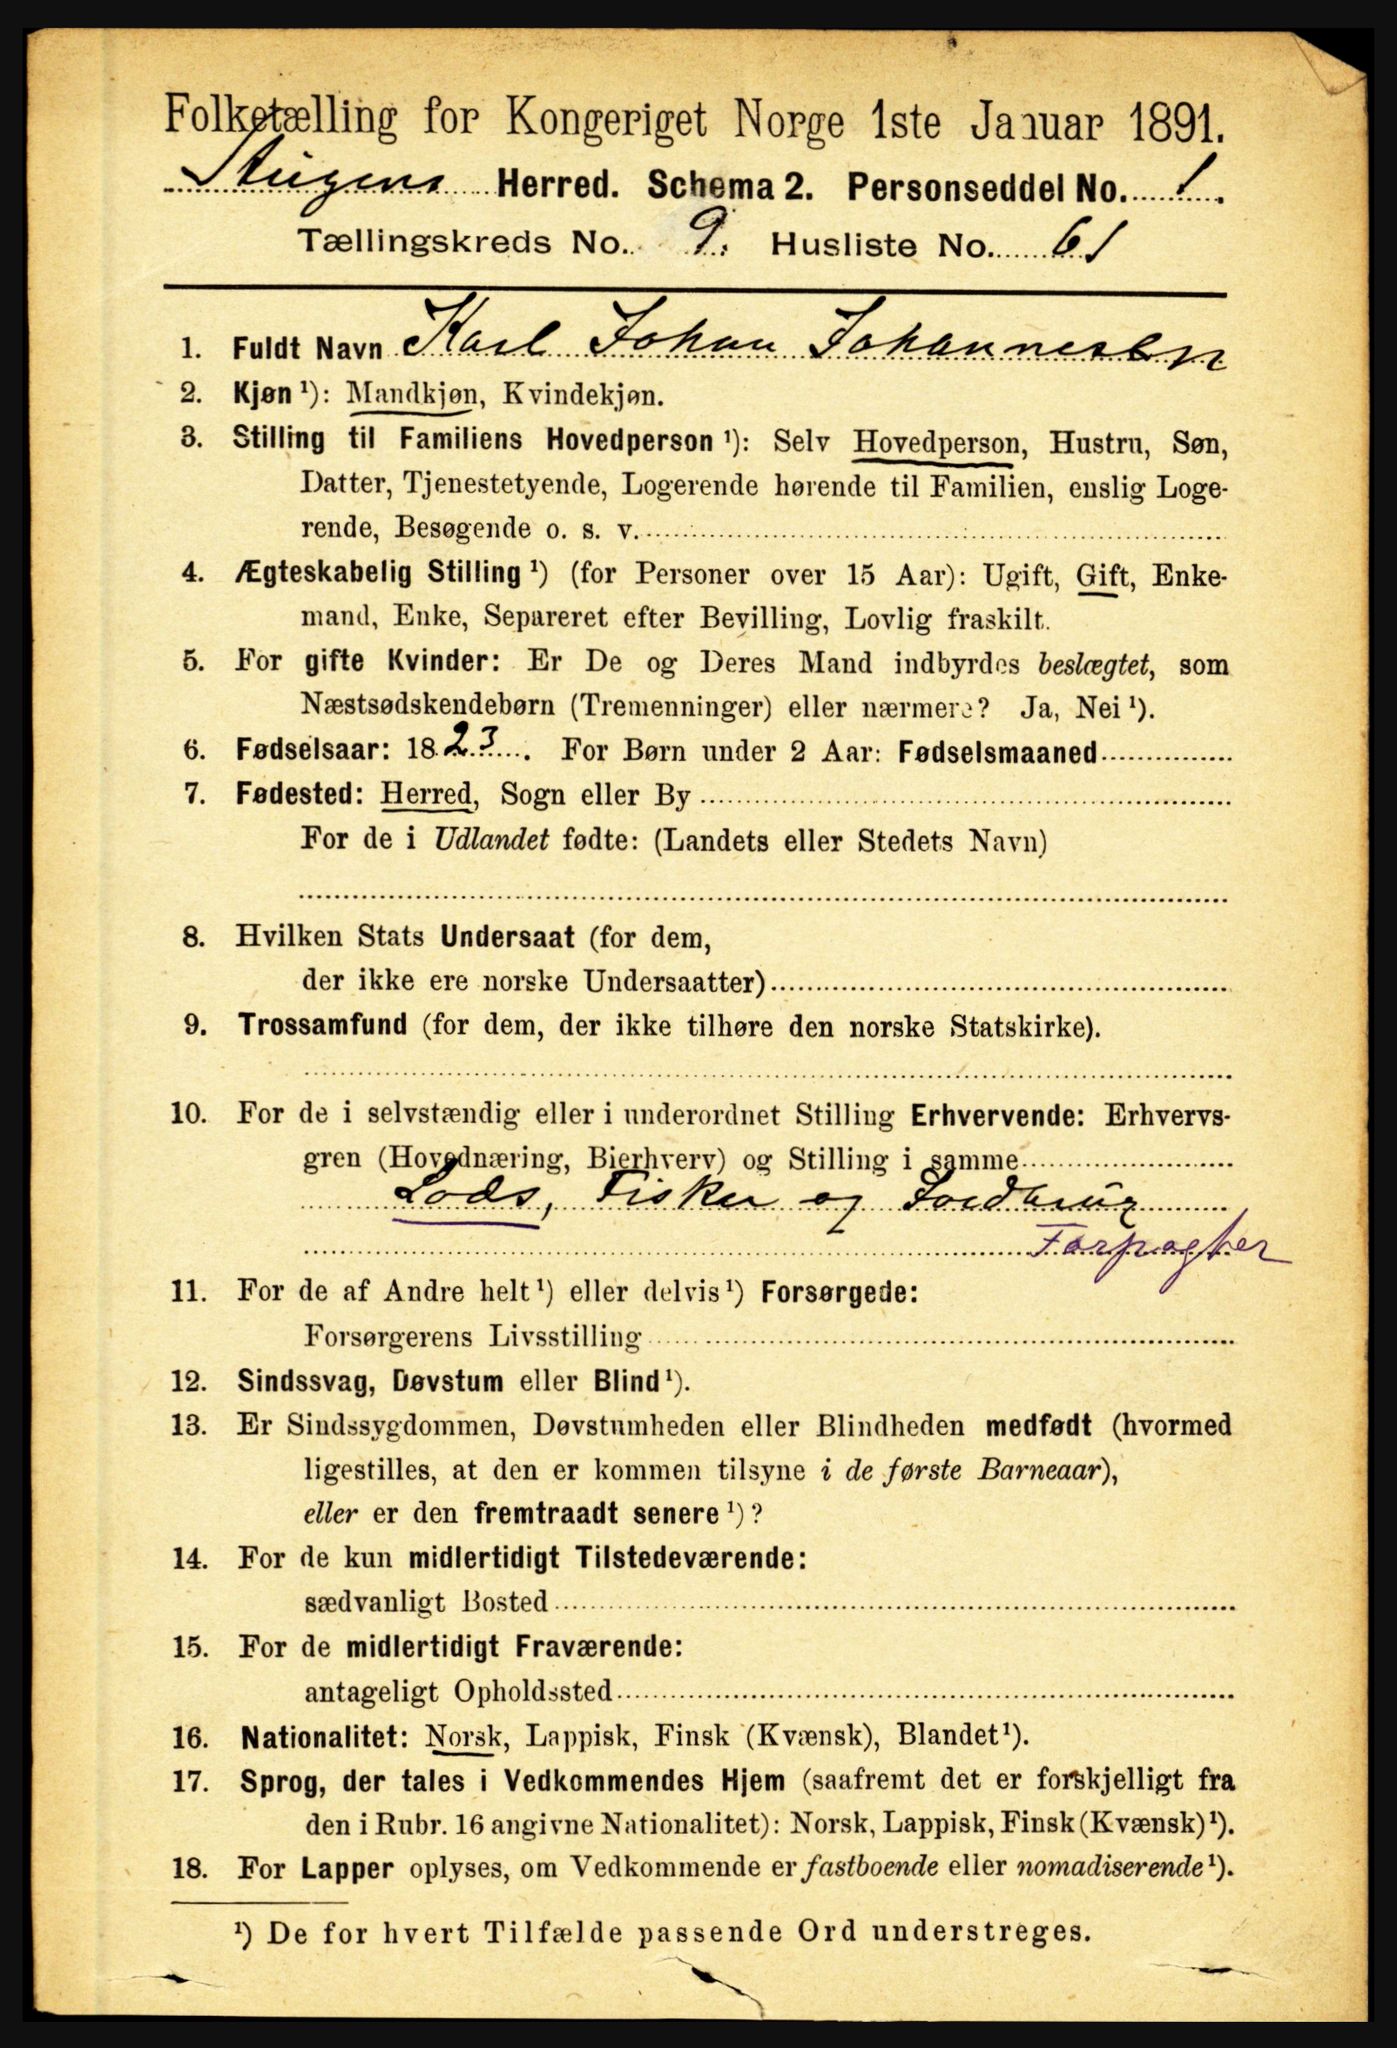 Folketælling for Kongeriget Norge 1ste Januar 1891.
Steigens Herred. Schema 2. Personseddel No. 1.
Tællingskreds No. 9. Husliste No. 61
1. Fuldt Navn Karl Johan Johannesen
2. Kjøn ¹): Mandkjøn, Kvindekjøn.
3. Stilling til Familiens Hovedperson ¹): Selv Hovedperson, Hustru, Søn,
Datter, Tjenestetyende, Logerende hørende til Familien, enslig Loge-
rende, Besøgende o. s. v.
4. Ægteskabelig Stilling ¹) (for Personer over 15 Aar): Ugift, Gift, Enke-
mand, Enke, Separeret efter Bevilling, Lovlig fraskilt.
5. For gifte Kvinder: Er De og Deres Mand indbyrdes beslægtet, som
Næstsødskendebørn (Tremenninger) eller nærmere? Ja, Nei ¹).
6. Fødselsaar: 1823. For Børn under 2 Aar: Fødselsmaaned
7. Fødested: Herred, Sogn eller By
For de i Udlandet fødte: (Landets eller Stedets Navn)
8. Hvilken Stats Undersaat (for dem,
der ikke ere norske Undersaatter)
9. Trossamfund (for dem, der ikke tilhøre den norske Statskirke).
10. For de i selvstændig eller i underordnet Stilling Erhvervende: Erhvervs-
gren (Hovednæring, Bierhverv) og Stilling i samme
Lods, Fisker og Jordbrug
Forpagter
11. For de af Andre helt ¹) eller delvis ¹) Forsørgede:
Forsørgerens Livsstilling
12. Sindssvag, Døvstum eller Blind ¹).
13. Er Sindssygdommen, Døvstumheden eller Blindheden medfødt (hvormed
ligestilles, at den er kommen tilsyne i de første Barneaar),
eller er den fremtraadt senere ¹)?
14. For de kun midlertidigt Tilstedeværende:
sædvanligt Bosted
15. For de midlertidigt Fraværende:
antageligt Opholdssted
16. Nationalitet: Norsk, Lappisk, Finsk (Kvænsk), Blandet ¹).
17. Sprog, der tales i Vedkommendes Hjem (saafremt det er forskjelligt fra
den i Rubr. 16 angivne Nationalitet): Norsk, Lappisk, Finsk (Kvænsk) ¹).
18. For Lapper oplyses, om Vedkommende er fastboende eller nomadiserende ¹).
¹) De for hvert Tilfælde passende Ord understreges.